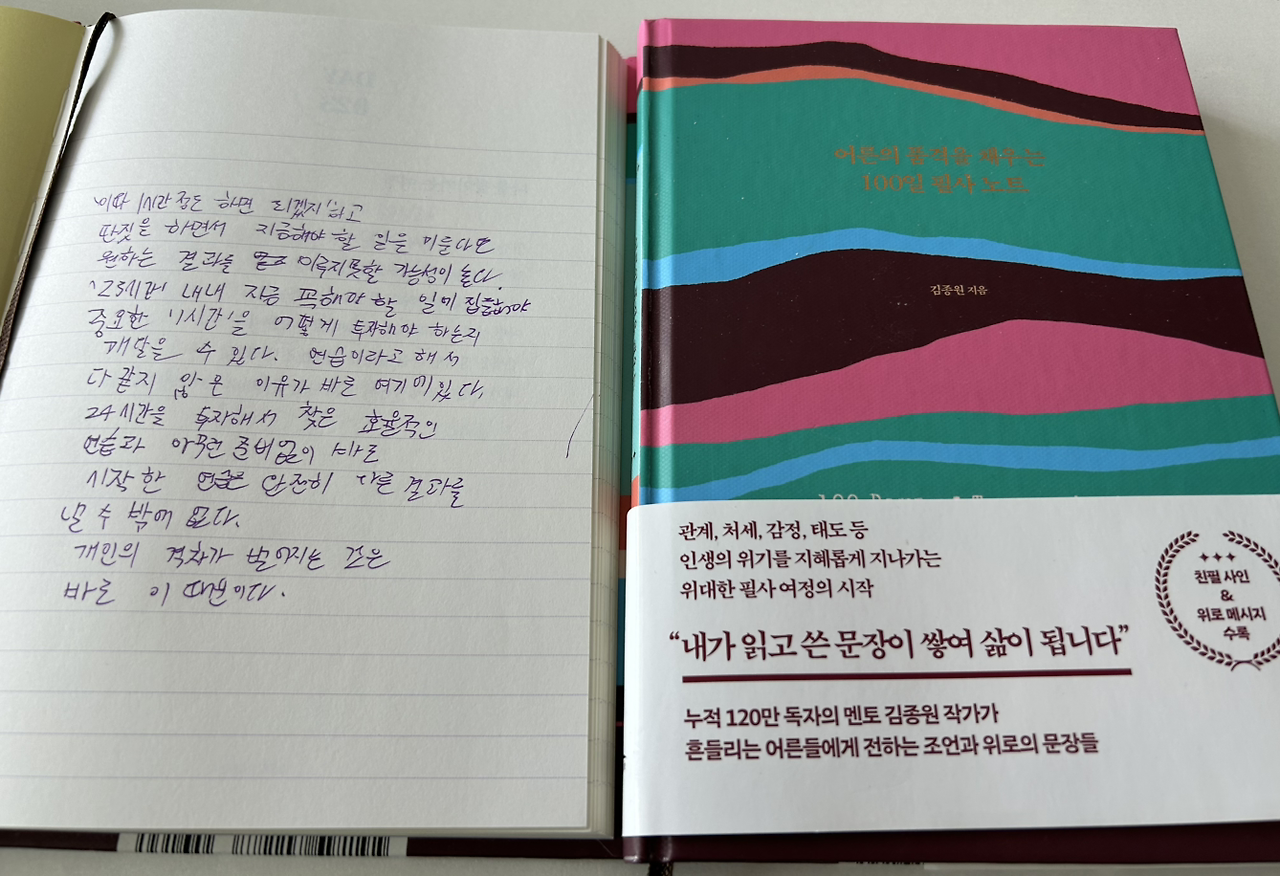 이따 1시간 정도 하면 되겠지'하고
딴짓을 하면서 지금해야 할 일을 미룬다면
원하는 결과를 이루지못할 가능성이 높다.
'23시간' 내내 지금 꼭해야 할 일에 집중해야
중요한 '1시간'을 어떻게 투자해야 하는지
깨달을 수 있다. 연습이라고 해서
다 같지 않은 이유가 바로 여기에있다.
24시간을 투자해서 찾은 효율적인
연습과 아무런 준비없이 바로
시작한 연습은 완전히 다른 결과를
낼 수 밖에 없다.
개인의 격차가 벌어지는 것은
바로 이 때문이다.
어른의 품격을 채우는
100일 필사 노트
김종원 지음
관계, 처세, 감정, 태도 등
인생의 위기를 지혜롭게 지나가는
위대한 필사 여정의 시작
“내가 읽고 쓴 문장이 쌓여 삶이 됩니다”
누적 120만 독자의 멘토 김종원 작가가
흔들리는 어른들에게 전하는 조언과 위로의 문장들
친필 사인
&
위로 메시지
수록